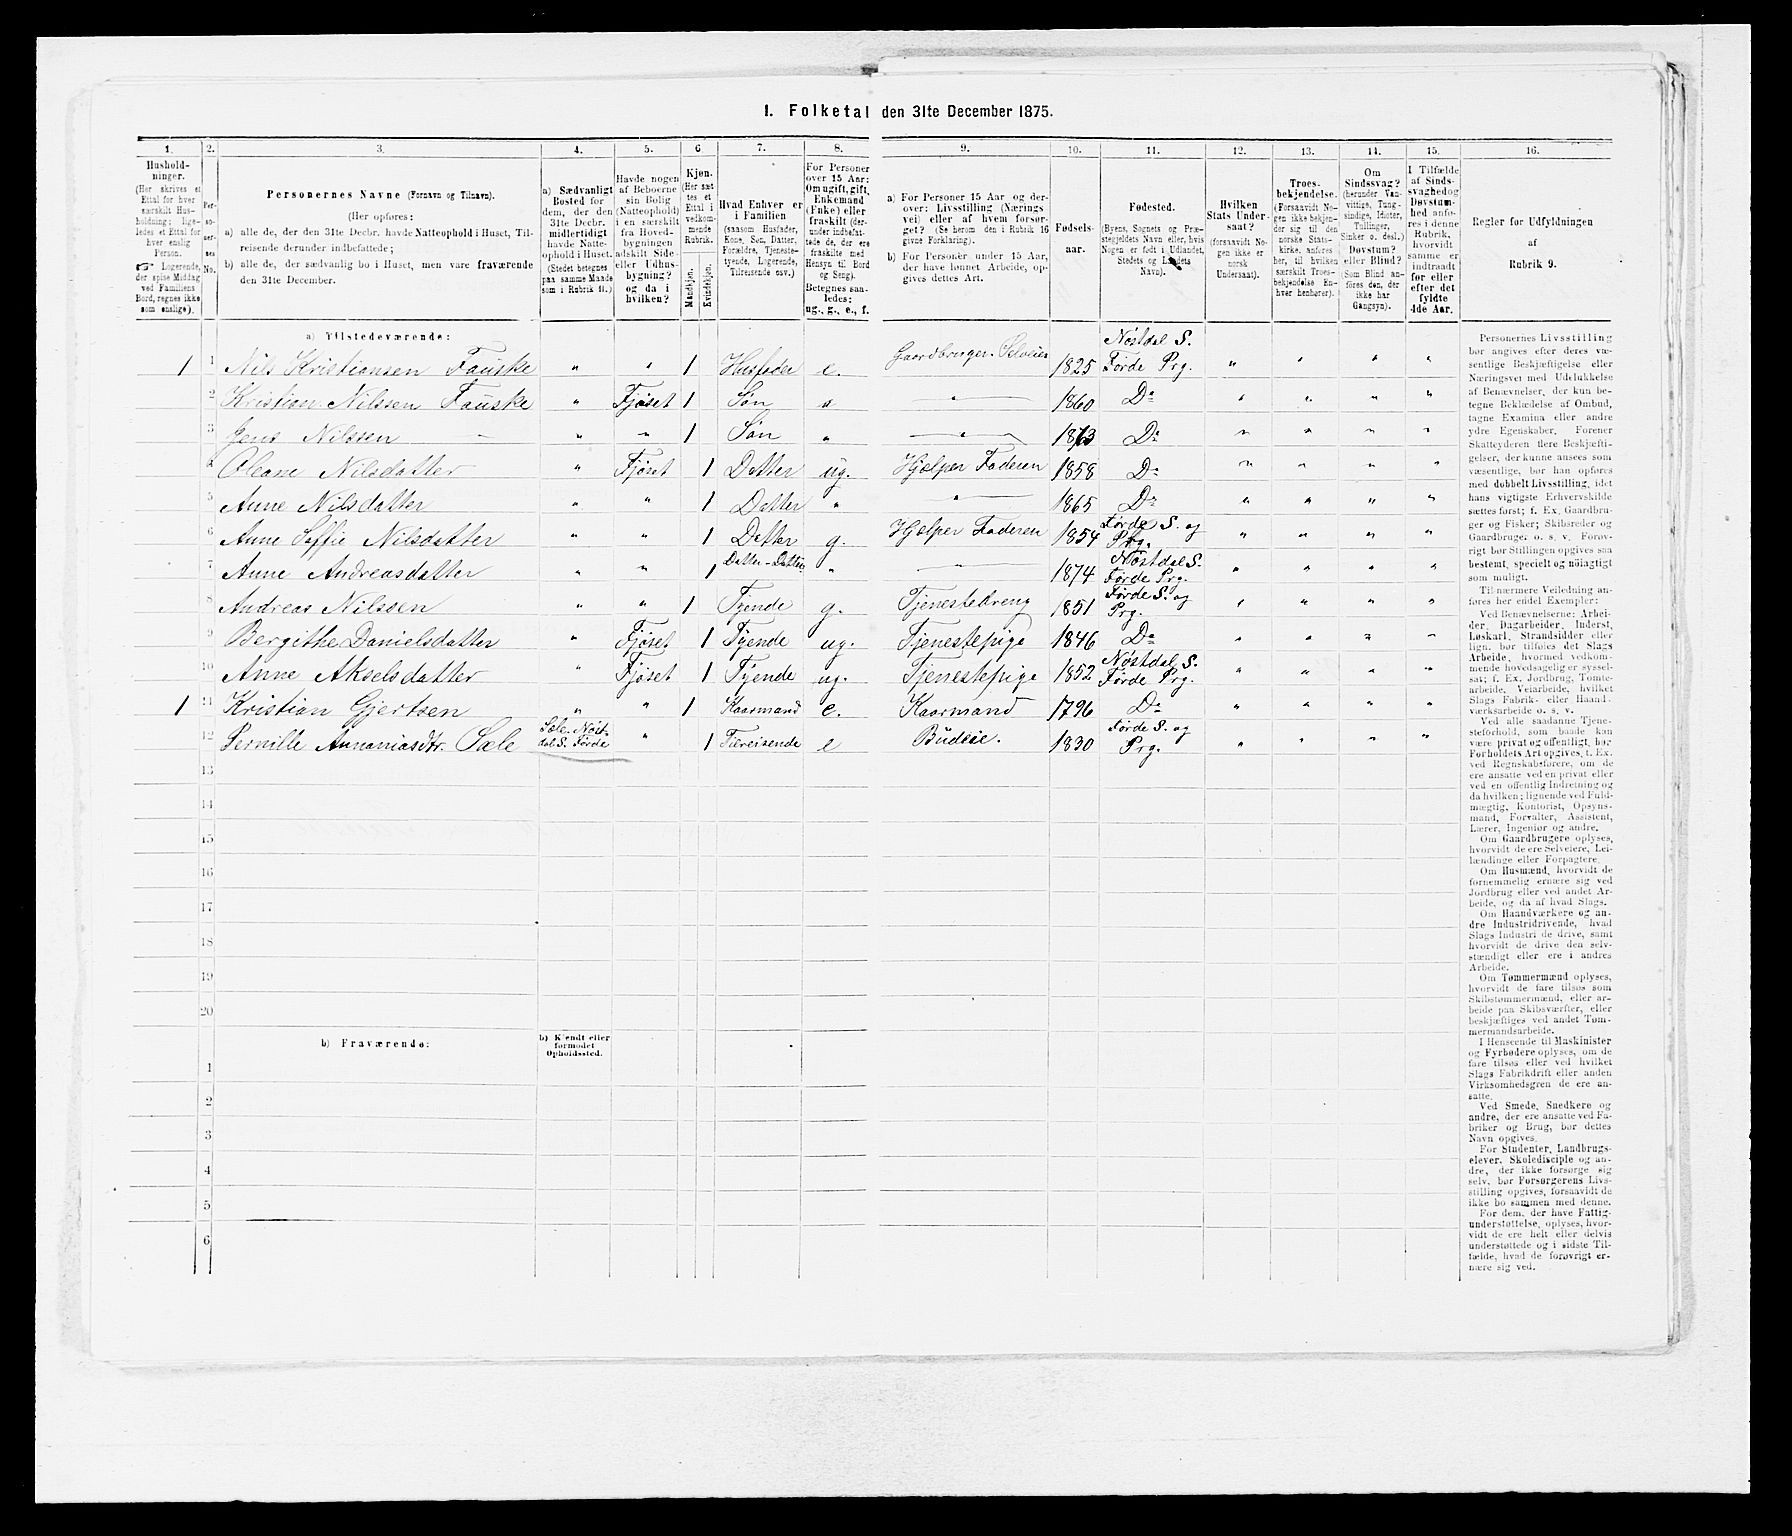 I. Folketal den 31te December 1875.
1. 2. 3. 4. 5. 6 7. 8. 9. 10. 11. 12. 13. 14. 15. 16.
Hushold-
ninger.
(Her skrives et
Ettal for hver
særskilt Hus-
holdning; lige-
ledes et Ettal for
hver enslig
Person.
☞ Logerende,
der spise Middag
ved Familiens
Bord, regnes ikke
som enslige).
Per-
so-
ner-
nes
No.
Personernes Navne (Fornavn og Tilnavn).
(Her opføres:
a) alle de, der den 31te Decbr. havde Natteophold i Huset, Til-
reisende derunder indbefattede;
b) alle de, der sædvanlig bo i Huset, men vare fraværende
den 31te December.
a) Sædvanligt
Bosted for
dem, der den
31te Decbr.
midlertidigt
havde Natte-
ophold i Huset.
(Stedet betegnes
paa samme Maade
som i Rubrik 11.)
Havde nogen
af Beboerne
sin Bolig
(Natteophold)
i en særskilt
fra Hoved-
bygningen
adskilt Side-
eller Udhus-
bygning?
og da i
hvilken?
Kjøn.
(Her sæt
tes et
Ettal i
vedkom-
mende
Rubrik.
Mandkjøn.
Kvindekjøn.
Hvad Enhver er
i Familien
(saasom Husfader,
Kone, Søn, Datter,
Forældre, Tjeneste-
tyende, Logerende,
Tilreisende osv.)
For Personer
over 15 Aar:
Om ugift, gift,
Enkemand
(Enke) eller
fraskilt (der-
under indbefat-
tede de, der ere
fraskilte med
Hensyn til Bord
og Seng).
Betegnes saa-
ledes:
ug., g., e., f.
a) For Personer 15 Aar og der-
over: Livsstilling (Nærings
vei) eller af hvem forsør-
get? (Se herom den i Rubrik 16
givne Forklaring).
b) For Personer under 15 Aar,
der have lønnet Arbeide, op-
gives dettes Art.
Fødsels-
aar.
Fødested.
(Byens, Sognets og Præ-
stegjeldets Navn eller, hvis
Nogen er født i Udlandet,
Stedets og Landets
Navn).
Hvilken
Stats Under-
saat?
(forsaavidt No-
gen ikke er
norsk
Undersaat).
Troes-
bekjendelse.
(Forsaavidt No-
gen ikke bekjen-
der sig til den
norske Stats-
kirke. anføres
her, til hvilken
særskilt Troes-
bekjendelse En-
hver henhører).
Om
Sindssvag?
(herunder Van-
vittige, Tung-
sindige, Idioter,
Tullinger,
Sinker o. desl.)
Døvstum?
eller Blind?
(Som Blind an-
føres den, der
ikke har
Gangsyn).
I Tilfælde
af Sinds-
svaghed og
Døvstum-
hed anfø-
res i denne
Rubrik,
hvorvidt
samme er
indtraadt
før eller
efter det
fyldte
4de Aar.
Regler for Udfyldningen
af
Rubrik 9.
a) Tilstedeværende:
1 1 Nils Kristiansen Fauske " " 1 Husfader e. Gaardbruger. Selveier 1825 Nøstdal S. Førde Prg. " " " "
2 Kristian Nilssen Fauske " Fjøset 1 Søn " " 1860 Do " " " "
3 Jens Nilssen " " 1 Søn " " 1873 Do " " " "
4 Oleane Nilsdatter " Fjøset 1 Datter ug. Hjælper Faderen 1858 Do " " " "
5 Anne Nilsdatter " " 1 Datter " " 1865 Do " " " "
6 Anne Soffie Nilsdatter " " 1 Datter g. Hjælper Faderen 1854 Førde S. og Prg. " " " "
7 Anne Andreasdatter " " 1 Datter-Datter " " 1874 Nøstdal S. Førde Prg. " " " "
8 Andreas Nilssen " " 1 Tyende g. Tjenestedreng 1851 Førde S. og Prg. " " " "
9 Bergithe Danielsdatter " Fjøset 1 Tyende ug. Tjenestepige 1846 Do " " " "
10 Anne Akselsdatter " Fjøset 1 Tyende ug. Tjenestepige 1852 Nøstdal S. Førde Prg. " " " "
1 11 Kristian Gjertsen " " 1 Kaarmand e. Kaarmand 1796 Do " " " "
12 Pernille Annaniasdtr. Sæle Sæle. Nøst-dal S. Førde " 1 Tilreisende e Budeie. 1830 Førde S. og Prg. " " " "
13
14
15
16
17
18
19
20
b) Fraværende:
b) Kjendt eller
formodet
Opholdssted.
1
2
3
4
5
6
Personernes Livsstilling
bør angives efter deres væ-
sentlige Beskjæftigelse eller
Næringsvei med Udelukkelse
af Benævnelser, der kun be-
tegne Beklædelse af Ombud,
tagne Examina eller andre
ydre Egenskaber. Forener
Skatteyderen flere Beskjæfti-
gelser, der kunne ansees som
væsentlige, bør han opføres
med dobbelt Livsstilling, idet
hans vigtigste Erhvervskilde
sættes først; f. Ex. Gaardbru-
ger og Fisker; Skibsreder og
Gaardbruger o. s. v. Forøv-
rigt bør Stillingen opgives saa
bestemt, specielt og nøiagtigt
som muligt.
Til nærmere Veiledning an-
føres her endel Exempler:
Ved Benævnelserne: Arbei-
der, Dagarbeider, Inderst,
Løskarl, Strandsidder eller
lign. bør tilføies det Slags
Arbeide, hvormed vedkom-
mende hovedsagelig er syssel-
sat; f. Ex. Jordbrug, Tomte-
arbeide, Veiarbeide, hvilket
Slags Fabrik- eller Haand
værksarbeide o. s. v.
Ved alle saadanne Tjene-
steforhold, som baade kan
være privat og offentligt, bør
Forholdets Art opgives, t. Ex.
ved Regnskabsførere, om de
ere ansatte ved en privat eller
ved en offentlig Indretning og
da hvilken; lignende ved Fuld-
mægtig, Kontorist, Opsyns-
mand, Forvalter, Assistent,
Lærer, Ingeniør og andre.
Om Gaardbrugere oplyses,
hvorvidt de ere Selveiere, Lei-
lændinge eller Forpagtere.
Om Husmænd, hvorvidt de
fornemmelig ernære sig ved
Jordbrug eller ved andet Ar-
beide, og da af hvad Slags.
Om Haandværkere og an-
dre Industridrivende, hvad
Slags Industri de drive, samt
hvorvidt de drive den selv-
stændigt eller ere i andres
Arbeide.
Om Tømmermænd oplyses,
hvorvidt de fare tilsøs som
Skibstømmermænd, eller ar-
beide paa Skibsværfter, eller
beskjæftiges ved andet Tøm-
mermandsarbeide.
I Henseende til Maskinister
og Fyrbødere oplyses, om de
fare tilsøs eller ved hvilket
Slags Fabrikdrift eller anden
Virksomhedsgren de ere an-
satte.
Ved Smede, Snedkere og
andre, der ere ansatte ved Fa-
briker og Brug, bør dettes
Navn opgives.
For Studenter, Landbrugs-
elever, Skoledisciple og an-
dre, der ikke forsørge sig
selv, bør Forsørgerens Livs-
stilling opgives, forsaavidt de
ikke bo sammen med denne.
For dem, der have Fattig-
understøttelse, oplyses, hvor-
vidt de ere helt eller delvis
understøttede og i sidste Til-
fælde, hvad de forøvrigt er-
nære sig ved.